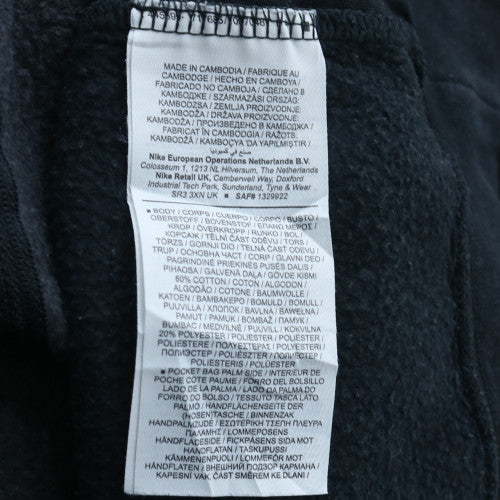 MADE IN CAMBODIA / FABRIQUE AU
CAMBODGE / HECHO EN CAMBOYA /
FABRICADO NO CAMBOJA / СДЕЛАНО В
КАМБОДЖЕ / SZÁRMAZÁSI ORSZÁG:
KAMBODZSA / ZEMLJA PROIZVODNJE:
KAMBODŽA / DRŽAVA PROIZVODNJE:
KAMBODŽA / ПРОИЗВЕДЕНО В КАМБОДЖА /
FABRICAT ÎN CAMBODGIA / RAŽOTS
KAMBODŽĀ / KAMBOÇYA'DA YAPILMIŞTIR /
صنع في كمبوديا
Nike European Operations Netherlands B.V.
Colosseum 1, 1213 NL Hilversum, The Netherlands
Nike Retail UK, Camberwell Way, Doxford
Industrial Tech Park, Sunderland, Tyne & Wear
SR3 3XN UK ■ SAF# 1329922
■ BODY / CORPS / CUERPO / CORPO / BUSTO /
OBERSTOFF / BOVENSTOF / ΕΠΑΝΩ ΜΕΡΟΣ /
KROP / ÖVERKROPP / RUNKO / BOL /
КОРСАЖ / TĚLNÍ ČÁST ODĚVU / TÖRS /
TÖRZS / GORNJI DIO / TELNÁ ČASŤ ODEVU /
TRUP / ОСНОВНА ЧАСТ / CORP / GLAVNI DEO /
PAGRINDINĖ PRIEKINĖS PUSĖS DALIS /
PIHAOSA / GALVENĀ DAĻA / GÖVDE KISMI
80% COTTON / COTON / ALGODÓN /
ALGODÃO / COTONE / BAUMWOLLE /
KATOEN / ΒΑΜΒΑΚΕΡΟ / BOMULD / BOMULL /
PUUVILLA / ХЛОПОК / BAVLNA / BAWEŁNA /
PAMUT / PAMUK / BOMBAŽ / ПАМУК /
BUMBAC / MEDVILNĖ / PUUVILL / KOKVILNA
20% POLYESTER / POLIÉSTER /
POLIESTERE / ΠΟΛΥΕΣΤΕΡΑΣ / POLYESTERI /
ПОЛИЭСТЕР / POLIESZTER / POLIESTER /
■ POCKET BAG PALM SIDE / INTÉRIEUR DE
POCHE CÔTÉ PAUME / FORRO DEL BOLSILLO
LADO DE PALMA / LADO DA PALMA DO
FORRO DO BOLSO / TESSUTO TASCA LATO
PALMO / HANDFLÄCHENSEITE DER
(HOSEN)TASCHE / BINNENZAK
HANDPALMZIJDE / ΕΣΩΤΕΡΙΚΟ ΤΣΕΠΗ ΠΛΕΥΡΑ
ΠΑΛΑΜΗΣ / LOMMEPOSENS
HÅNDFLADESIDE / FICKPÅSENS SIDA MOT
HANDFLATAN / TASKUPUSSI
KÄMMENPUOLELTA / LOMMEFÔR MOT
HÅNDFLATEN / ВНЕШНИЙ ПОДКЛАД КАРМАНА /
KAPESNÍ VAK, ČÁST SMĚREM KE DLANI /